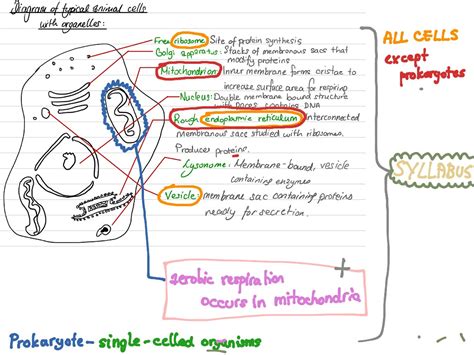 Diagram of typical animal cells
with organelles:
Free ribosome: Site of protein synthesis
Golgi apparatus: Stacks of membranous sacs that
modify proteins
Mitochondrion: Inner membrane forms cristae to
increase surface area for respiring
Nucleus: Double membrane bound structure
with pores contains DNA
Rough endoplasmic reticulum: Interconnected
membranous sac studied with ribosomes.
Produces proteins.
Lysosome: Membrane-bound, vesicle
containing enzymes
Vesicle: membrane sac containing proteins
ready for secretion.
ALL CELLS
except
prokaryotes
SYLLABUS
aerobic respiration
occurs in mitochondria
Prokaryote - single-celled organisms